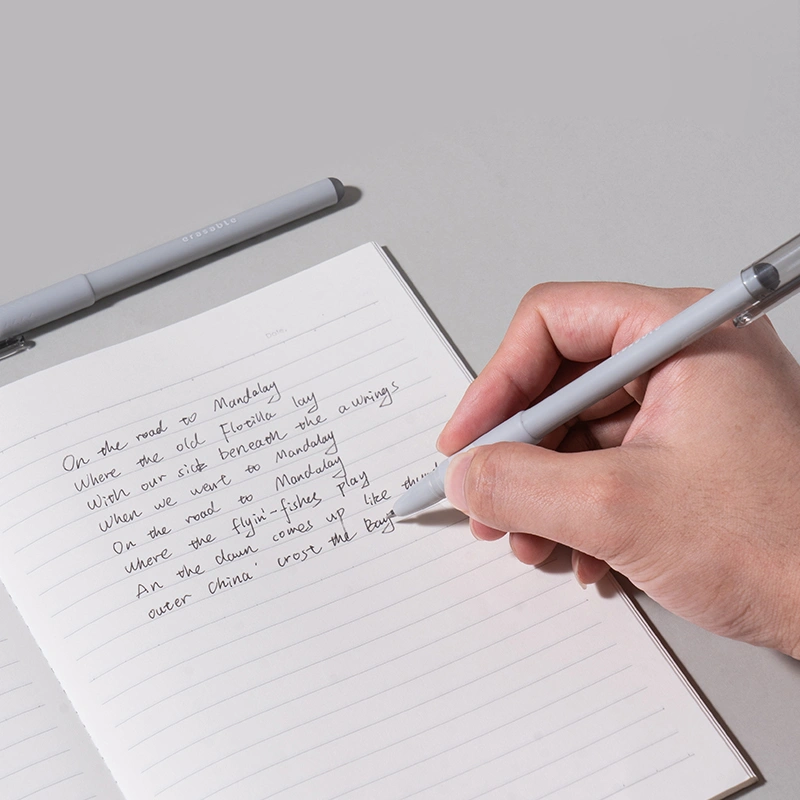 erasable
DATE.
On the road to Mandalay
Where the old Flotilla lay
With our sick beneath the awnings
When we went to Mandalay
On the road to Mandalay
where the flyin'-fishes play
An the dawn comes up like
outer China' crost the Bay